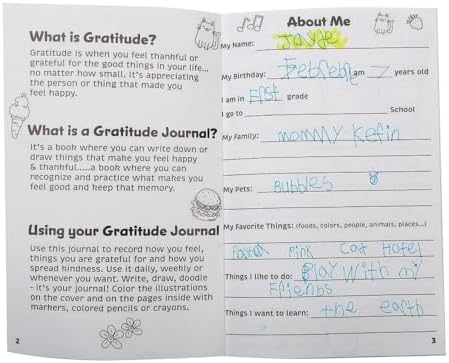 What is Gratitude?
Gratitude is when you feel thankful or
grateful for the good things in your life...
no matter how small. It's appreciating
the person or thing that made you
feel happy.
What is a Gratitude Journal?
It's a book where you can write down or
draw things that make you feel happy
& thankful.....a book where you can
recognize and practice what makes you
feel good and keep that memory.
Using your Gratitude Journal
Use this journal to record how you feel,
things you are grateful for and how you
spread hindness. Use it daily, weekly or
whenever you want. Write, draw, doodle
- it's your journal! Color the illustrations
on the cover and on the pages inside with
markers, colored pencils or crayons.
2
About Me
My Name:
My Birthday: I am 7 years old
I am in First grade
I go to School
My Family: mommy Kefin
My Pets: BUbbles
My Favorite Things: (foods, colors, people, animals, places...)
Pink Cat Hotel
Things I like to do: Play With my
Friends
Things I want to learn: the earth
3